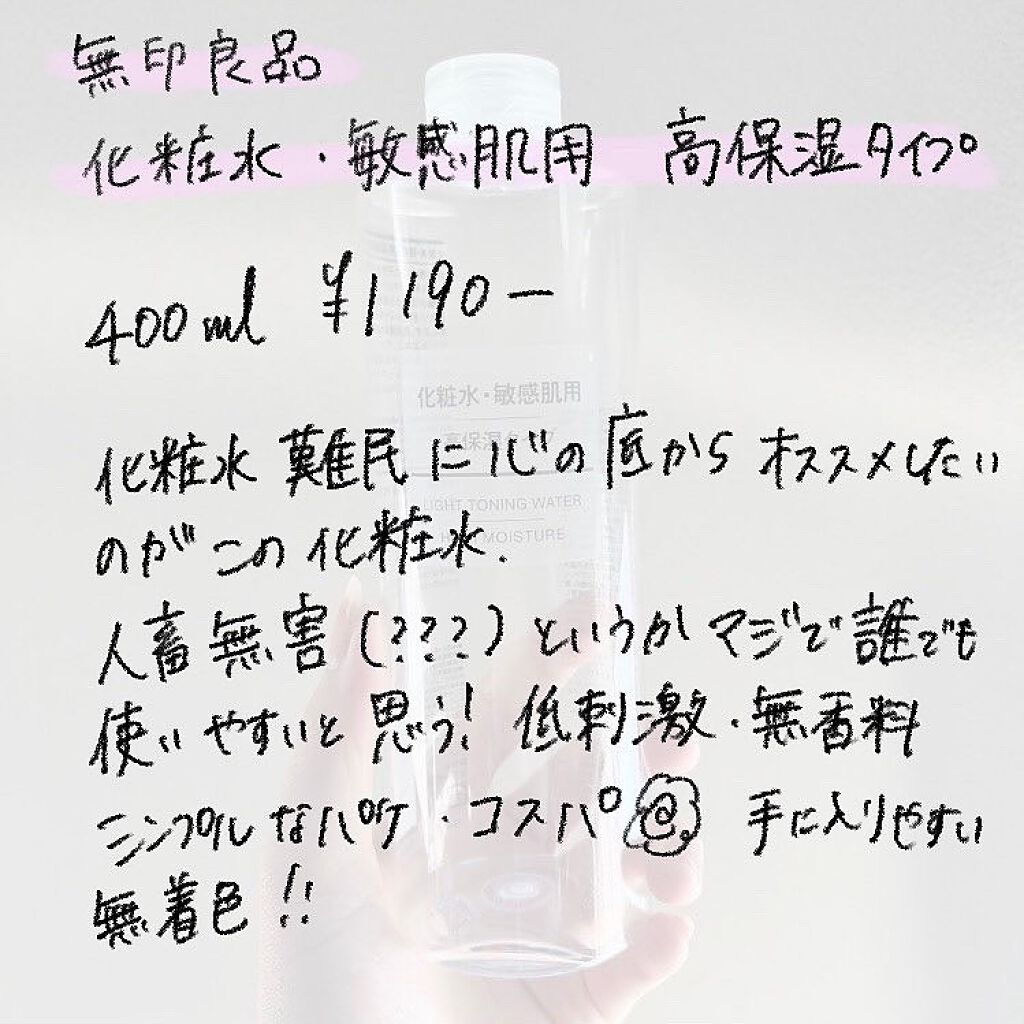 無印良品
化粧水・敏感肌用 高保湿タイプ
400ml ¥1190ー
化粧水・敏感肌用
高保湿タイプ
LIGHT TONING WATER
HIGH MOISTURE
化粧水難民に心の底からオススメしたい
のがこの化粧水.
人畜無害(???)というかマジで誰でも
使いやすいと思う! 低刺激・無香料
シンプルなパケ・コスパ 手に入りやすい
無着色!!